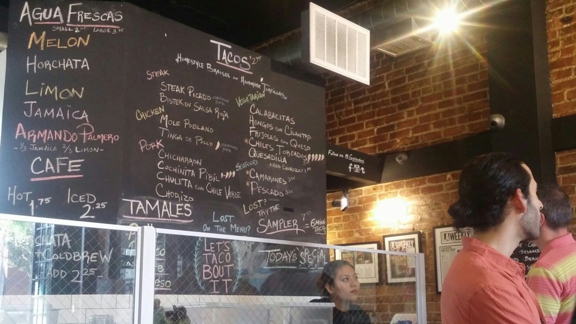 AGUA FRESCAS
SMALL 2.
MELON
HORCHATA
LIMON
JAMAICA
ARMANDO PALMERO
- ½ JAMAICA ½ LIMON -
CAFE
HOT ICED
1.75 2.25
TACOS
HOMEMADE
STEAK
STEAK PICADO
BISTEK EN SALSA ROJA
CHICKEN
MOLE POBLANO
TINGA DE POLLO
PORK
CHICHARRON
COCHINITA PIBIL
CHULETA CON CHILE VERDE
CHORIZO
VEGETARIAN
CALABACITAS
HONGOS CON CILANTRO
FRIJOLES CON QUESO
CHILES TOREADOS
QUESADILLA
CAMARONES
PESCADO
TAMALES
LOST
ON THE MENU?
LOST?
TRY THE
SAMPLER
COLDBREW
ADD 2.25
LET'S
TACO
BOUT
IT
TODAY'S SPECIAL
WEEKLY